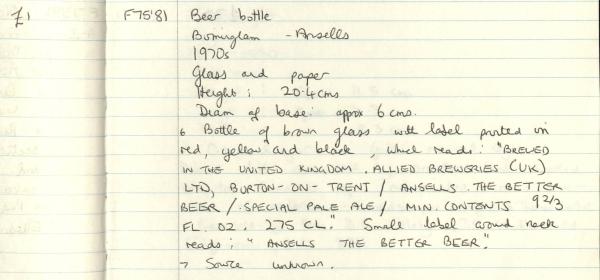 F75'81 Beer bottle
Birmingham - Ansells
1970s
Glass and paper
Height: 20.4cms
Diam of base: approx 6 cms.
6 Bottle of brown glass with label printed in
red, yellow and black, which reads: "BREWED
IN THE UNITED KINGDOM. ALLIED BREWERIES (UK)
LTD, BURTON-ON-TRENT / ANSELLS. THE BETTER
BEER / SPECIAL PALE ALE / MIN. CONTENTS 9 2/3
FL. OZ. 275 CL." Small label around neck
reads: "ANSELLS THE BETTER BEER".
7 Source unknown.